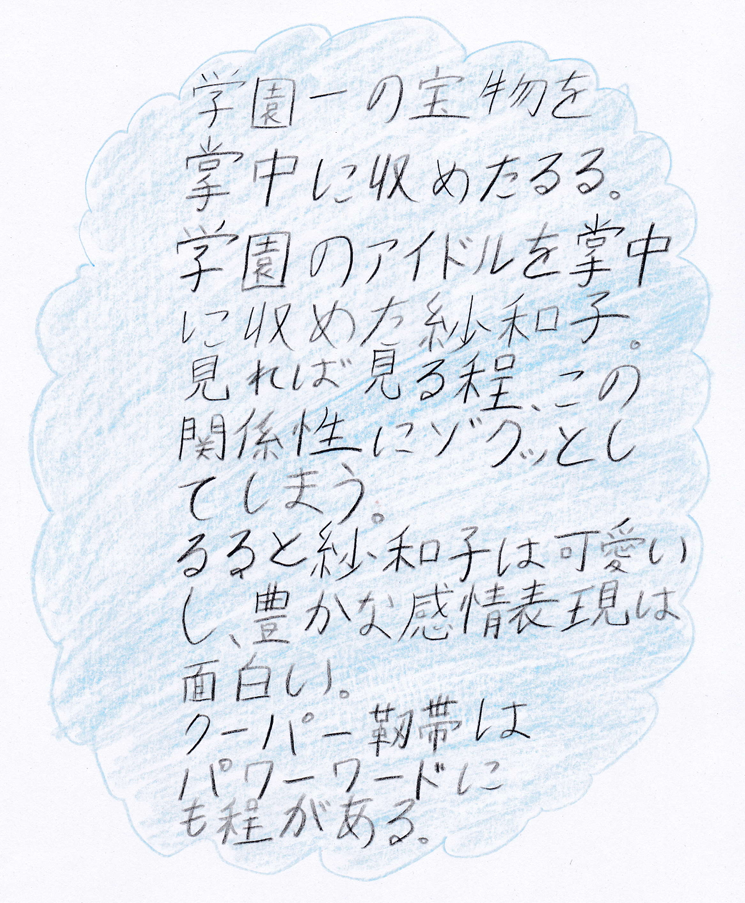 学園一の宝物を
掌中に収めたるる。
学園のアイドルを掌中
に収めた紗和子。
見れば見る程、この
関係性にゾクッとし
てしまう。
るると紗和子は可愛い
し、豊かな感情表現は
面白い。
クーパー靭帯は
パワーワードに
も程がある。